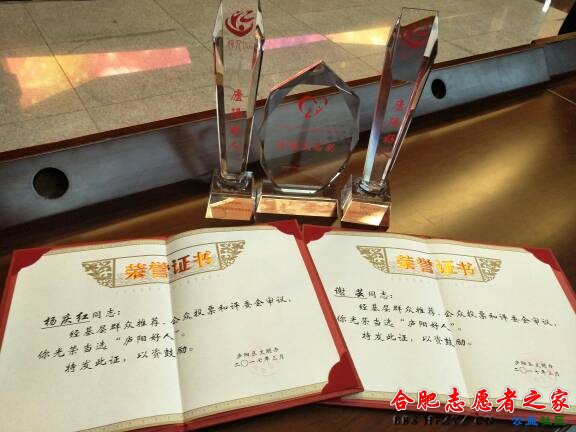 庐阳好人
庐阳好人
荣誉证书
杨庆红同志：
经基层群众推荐、公众投票和评委会审议，
你光荣当选“庐阳好人”。
特发此证，以资鼓励。
庐阳区文明办
二〇一七年三月
荣誉证书
谢英同志：
经基层群众推荐、公众投票和评委会审议，
你光荣当选“庐阳好人”。
特发此证，以资鼓励。
庐阳区文明办
二〇一七年三月
合肥志愿者之家
BBS.HFZYZ.CN
公益社区